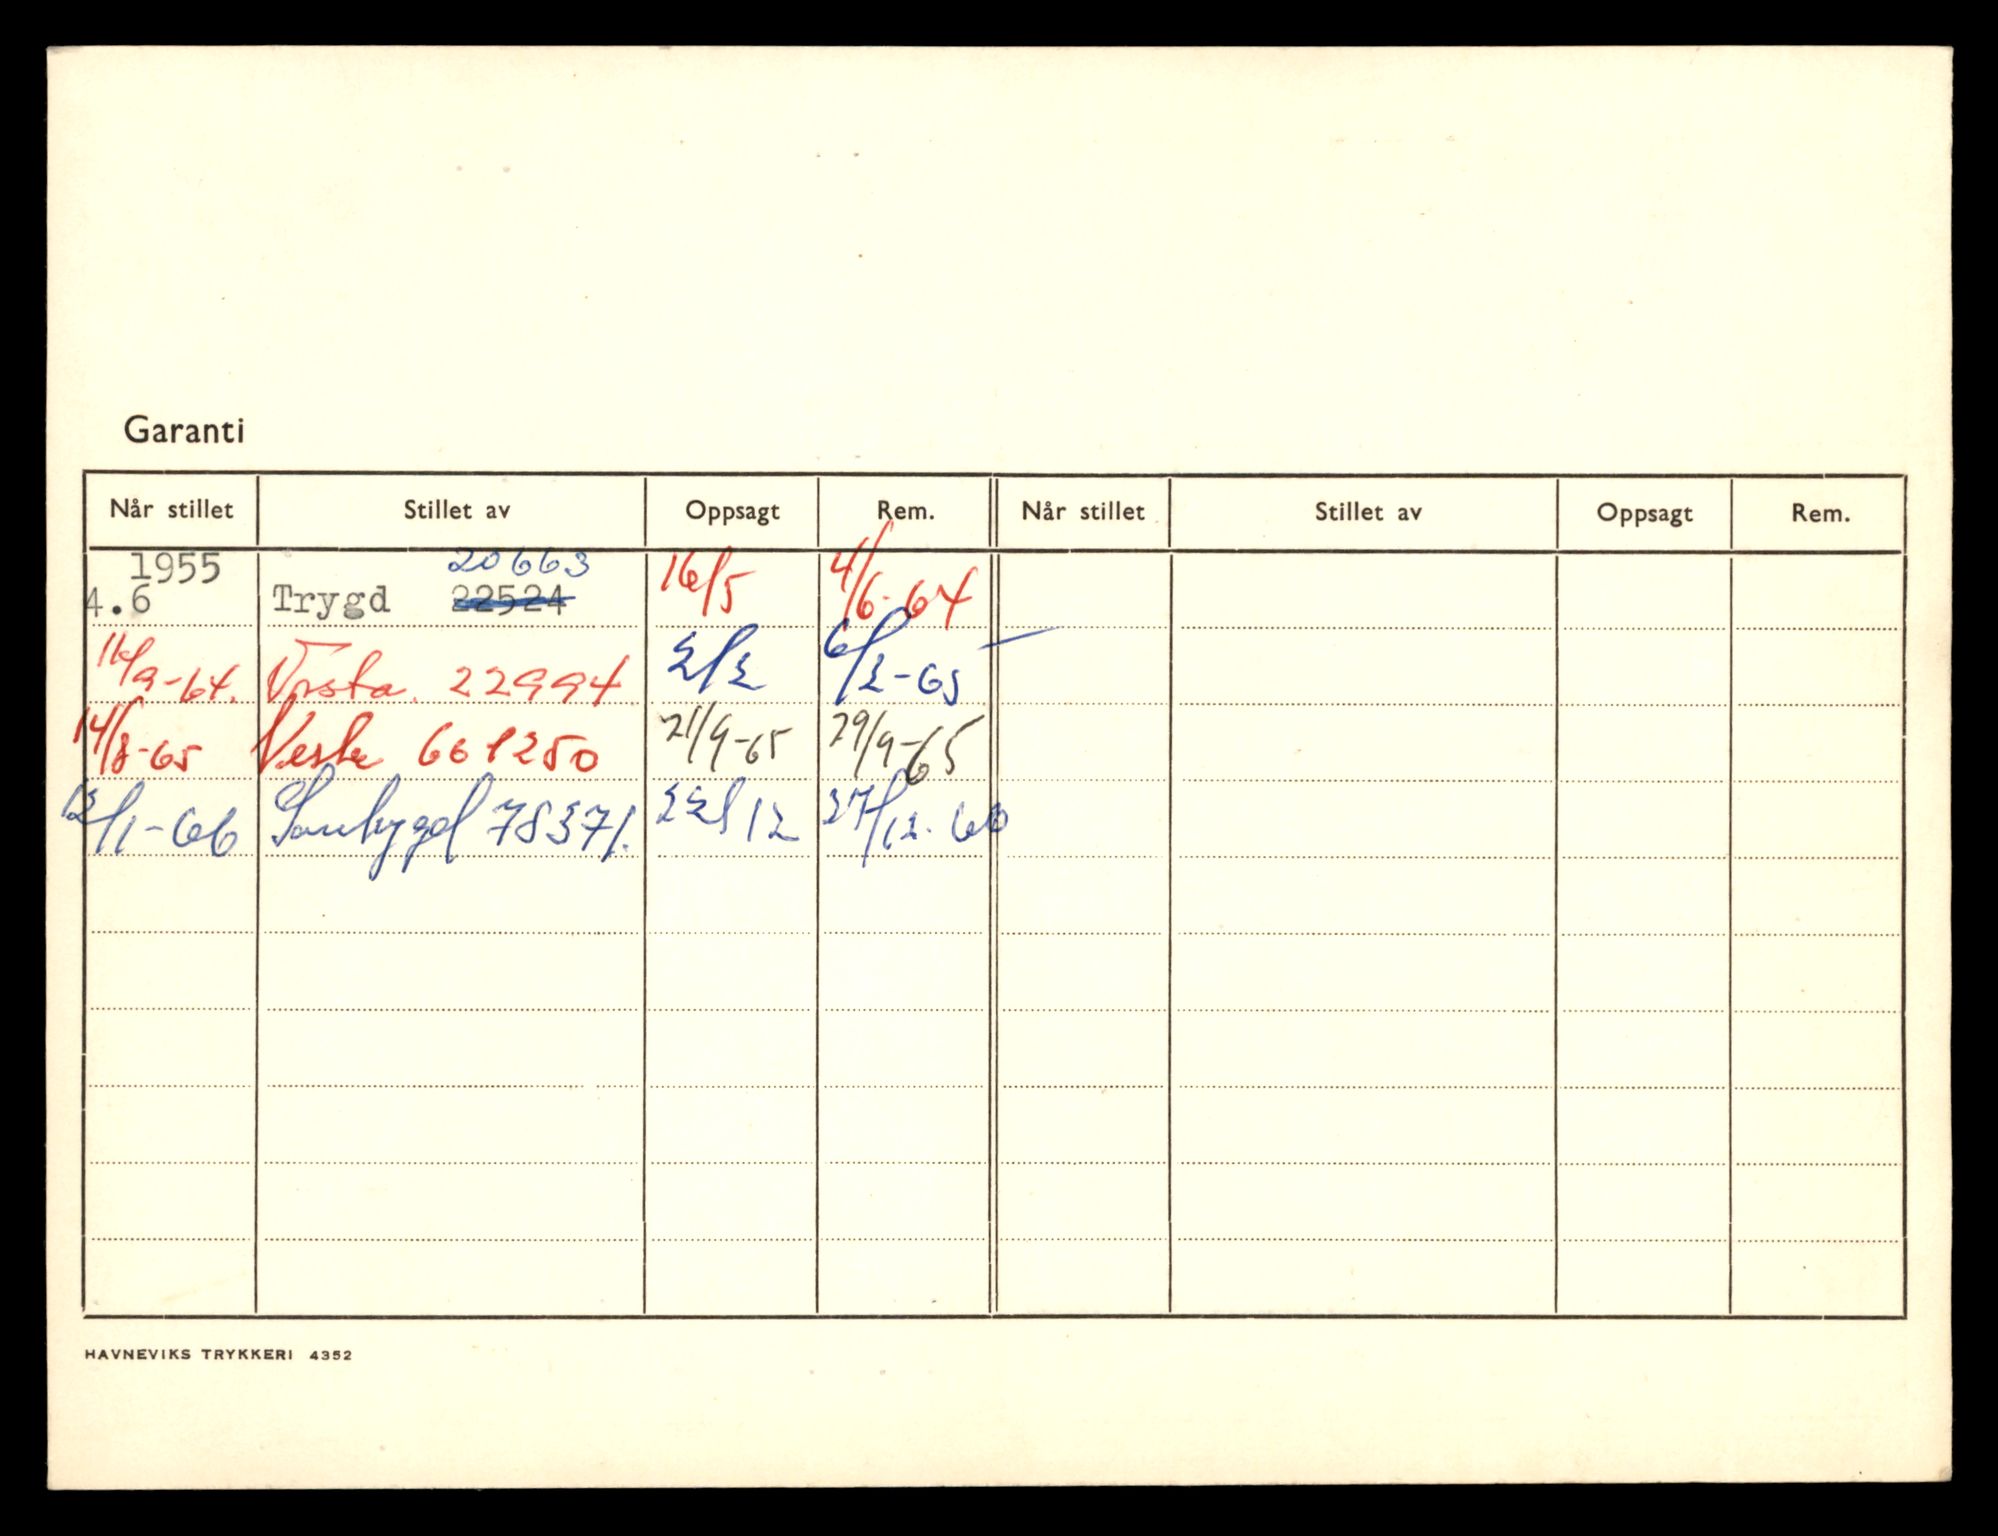 Garanti
Når stillet Stillet av Oppsagt Rem. Når stillet Stillet av Oppsagt Rem.
1955 20663
4.6 Trygd 22524 16/5 4/6-64
16/9-64. Vørsta. 22994 2/2 6/2-65
14/8-65 Vesta 661250 21/9-65 29/9-65
12/1-66 Samtrygd 78371. 22/12 27/12-66
HAVNEVIKS TRYKKERI 4352